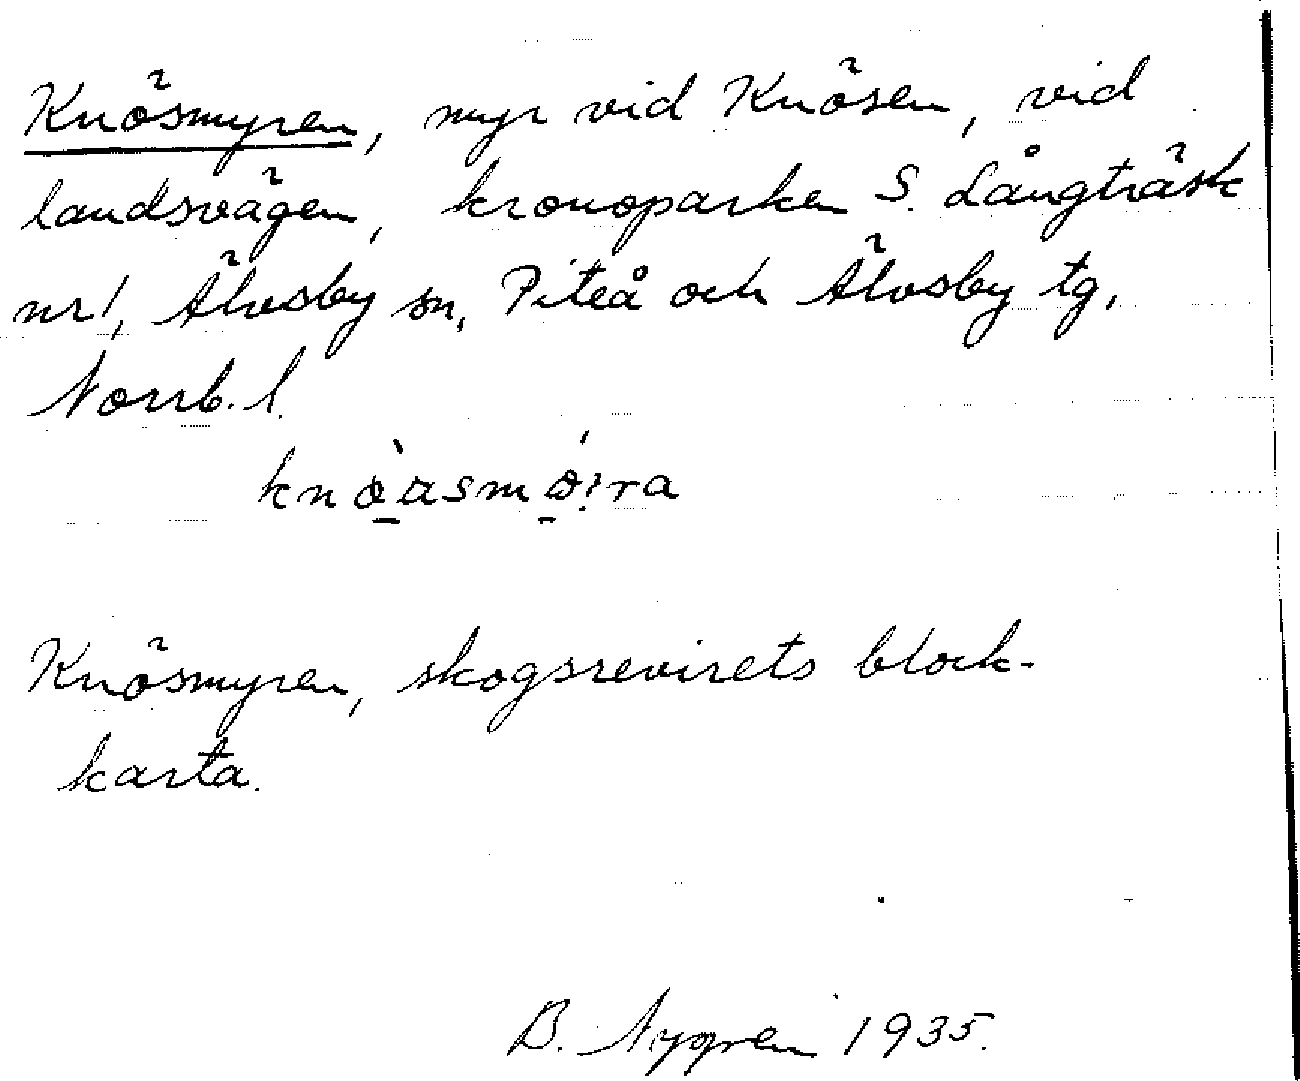 Knösmyren, myr vid Knösen, vid
landsvägen, kronoparken S. Långträsk
nr 1, Älvsby sn, Piteå och Älvsby tg,
Norrb. l.
Knösmyren, skogsrevirets block-
karta.
B. Nygren 1935.